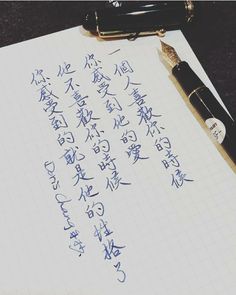 一個人喜歡你的時候
你感受到他的愛
他不喜歡你的時候
你感受到的就是他的性格了